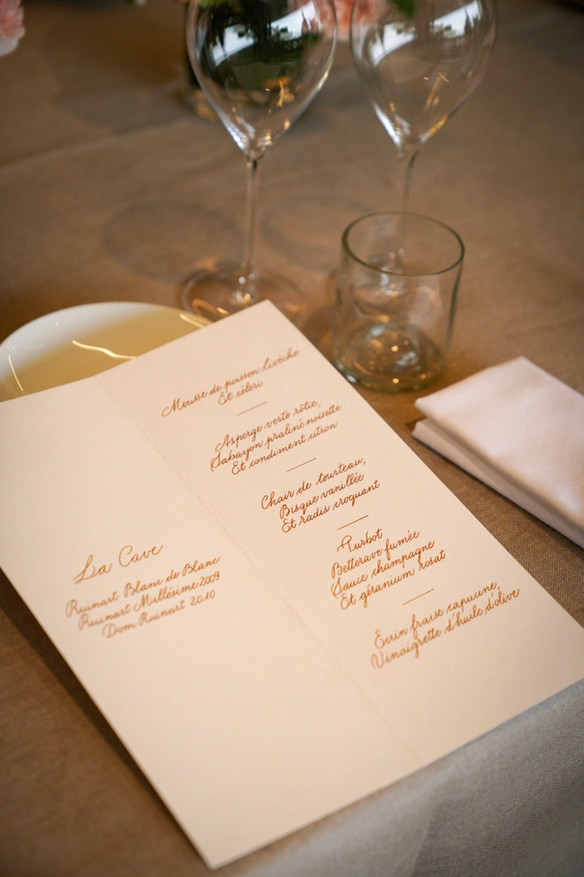 La Cave
Ruinart Blanc de Blanc
Ruinart Millésime 2009
Dom Ruinart 2010
Mousse de poisson livèche
Et céleri
Asperge verte rôtie,
Sabayon praliné noisette
Et condiment citron
Chair de tourteau,
Bisque vanillée
Et radis croquant
Turbot
Betterave fumée
Sauce champagne
Et géranium rosat
Ecrin fraise capucine,
Vinaigrette d'huile d'olive